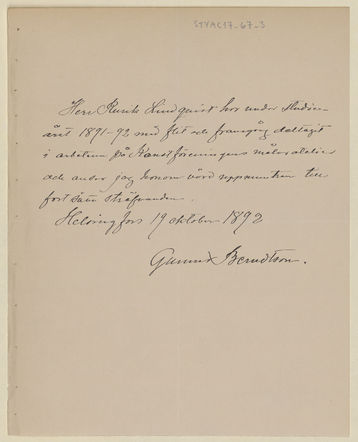 STVAC17-67-3
Herr Runik Lindquist har under Studie-
året 1891-92 med flit och framgång deltagit
i arbetena på Konstföreningens målareatelier
och anser jag honom värd uppmuntran till
fortsatta sträfvanden.
Helsingfors 19 oktober 1892
Gunnar Berndtson.